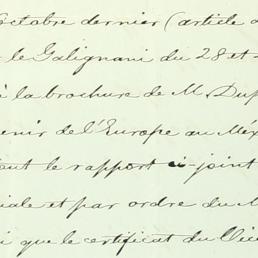 octobre dernier (article
le Galignani du 28 et
à la brochure de M. Dup
enir de l'Europe au Méx
tout le rapport ci-joint
iale et par ordre du M
i que le certificat du Vice